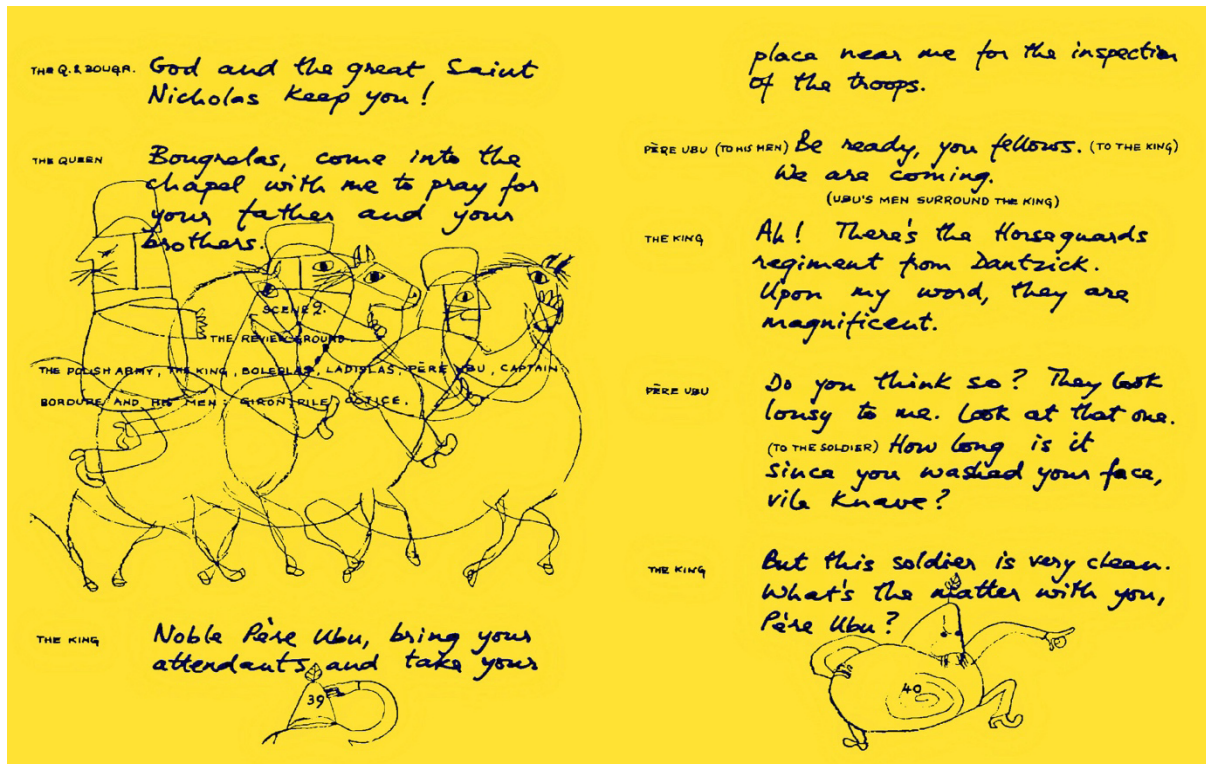 THE Q. & BOUGR. God and the great Saint
Nicholas keep you!
THE QUEEN Bougrelas, come into the
chapel with me to pray for
your father and your
brothers.
SCENE 2.
THE REVIEW GROUND.
THE POLISH ARMY, THE KING, BOLESLAS, LADISLAS, PÈRE UBU, CAPTAIN
BORDURE AND HIS MEN: GIRON, PILE, COTICE.
THE KING Noble Père Ubu, bring your
attendants and take your
39
place near me for the inspection
of the troops.
PÈRE UBU (TO HIS MEN) Be ready, you fellows. (TO THE KING)
We are coming.
(UBU'S MEN SURROUND THE KING)
THE KING Ah! There's the Horseguards
regiment from Dantzick.
Upon my word, they are
magnificent.
PÈRE UBU Do you think so? They look
lousy to me. Look at that one.
(TO THE SOLDIER) How long is it
since you washed your face,
vile Knave?
THE KING But this soldier is very clean.
What's the matter with you,
Père Ubu?
40